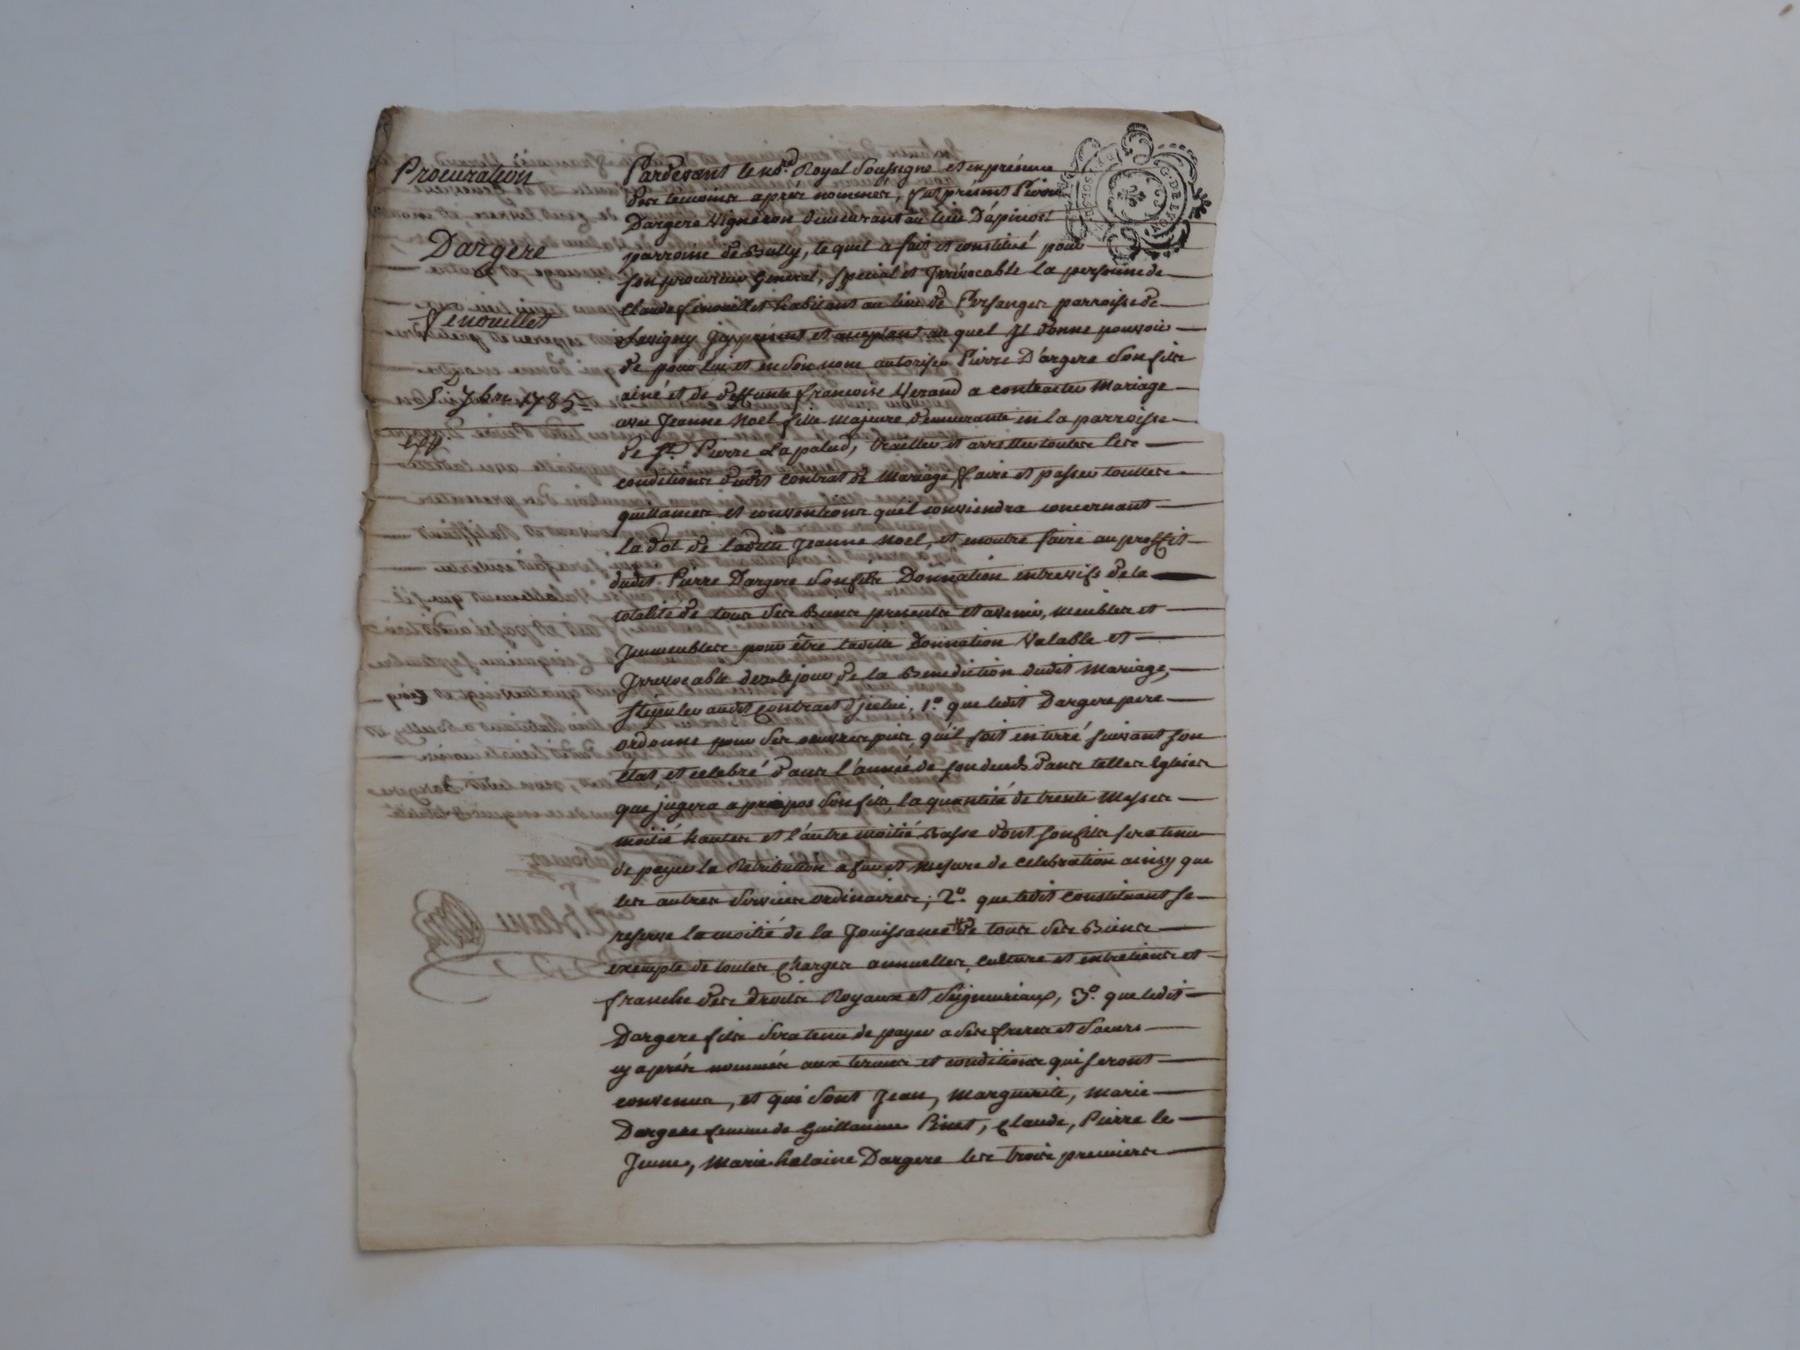 Procuration
Dargere
Fenouillet
5. 7bre 1785
Pardevant le no.re Royal Soussigné et en présence
des temoins apres nommés, fut présent Pierre
Dargere Vigneron demeurant au lieu D'apinost
parroisse de Bully, lequel a fait et constitué pour
son procureur General, special et Jrrévocable la personne de
Claude Fenouillet habitant au lieu de Persanges parroisse de
Savigny jcy présent et acceptant au quel Jl donne pouvoir
de pour lui et en Son nom autoriser Pierre D'argere Son fils
ainé et de deffunte françoise Verand a contracter Mariage
avec Jeanne Noel fille Majeure demeurante en la parroisse
de St. Pierre Lapalud, traitter et arretter toutes les
conditions dudit contrat de Mariage faire et passer touttes
quittances et conventions qu'il conviendra concernant
la dot de ladite Jeanne Noel, et en outre faire au proffit
dudit Pierre Dargere Son fils Donnation entrevifs de la
totalité de tous Ses Biens presents et avenir, meubles et
Jmmeubles pour être ladite Donnation Valable et
Jrrevocable des le jour de la Benediction dudit Mariage,
stipuler audit Contrait d'jcelui, 1.° que ledit Dargere pere
ordonne pour Ses œuvres pies qu'il soit enterré suivant son
état et celebré dans l'année de son decès dans telles Eglises
que jugera a propos Son fils, la quantité de trente Messes
moitié hautes et l'autre moitié Basse dont son fils sera tenu
de payer la Retribution a fur et mesure de celebration ainsy que
les autres Services ordinaires; 2.° que ledit constituant se
reserve la moitié de la Jouissance de tous Ses Biens
exempte de toutes Charges annuelles, Culture et entretiens et
franche des droits Royaux et Seigneuriaux, 3.° que ledit
Dargere fils Sera tenu de payer a Ses freres et Sœurs
cy après nommés aux termes et conditions qui seront
convenus, et qui Sont Jean, Marguerite, Marie
Dargere femme de Guillaume Pinet, Claude, Pierre le
Jeune, Marie helaine Dargere les trois premiers